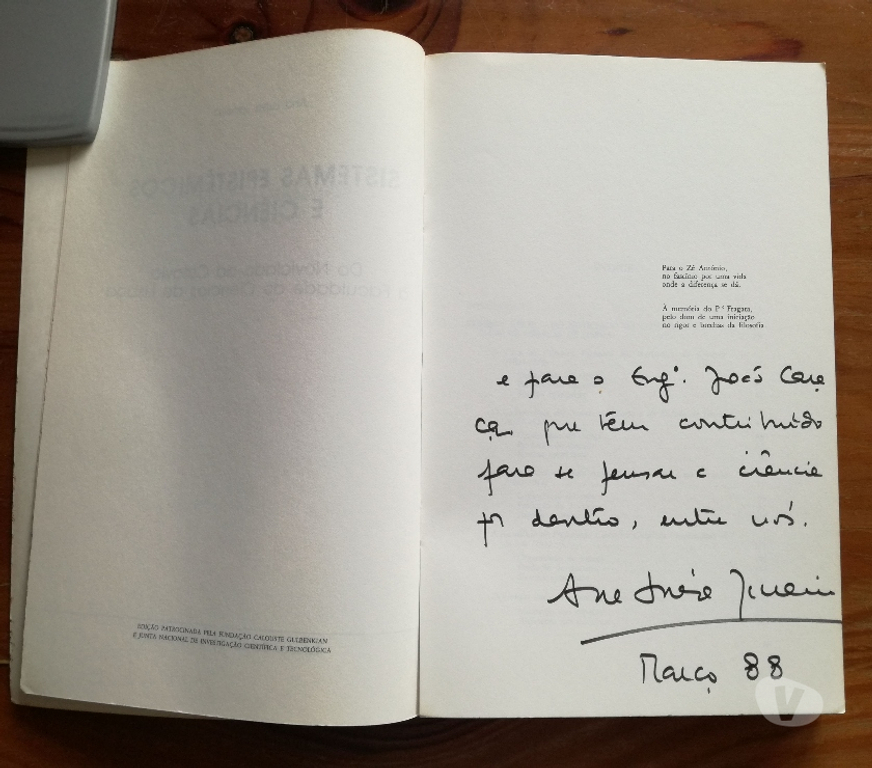 SISTEMAS EPISTÉMICOS
E CIÊNCIAS
EDIÇÃO PATROCINADA PELA FUNDAÇÃO CALOUSTE GULBENKIAN
E JUNTA NACIONAL DE INVESTIGAÇÃO CIENTÍFICA E TECNOLÓGICA
Para o Zé António,
no fascínio por uma vida
onde a diferença se dá.
À memória do P.e Fragata,
pelo dom de uma iniciação
no rigor e
da filosofia
e para o Engº. José Cara
ça que têm contribuído
para se pensar a ciência
por dentro, entre nós.
Ana
Março 88
V